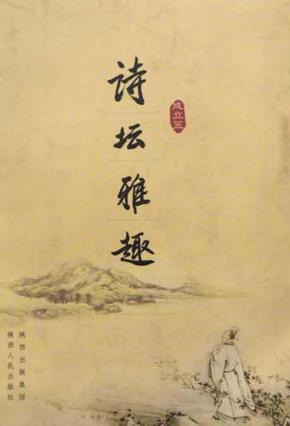 诗坛雅趣
成立笠
陕西出版集团
陕西人民出版社